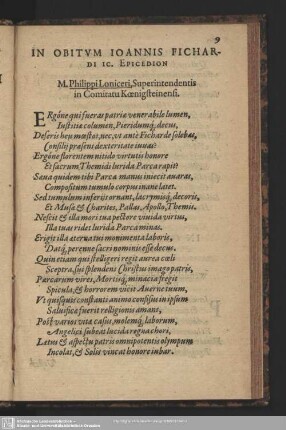 9
IN OBITVM IOANNIS FICHAR-
DI IC. EPICEDION
M. Philippi Loniceri, Superintendentis
in Comitatu Kœnigsteinensi.
ERgóne qui fueras patriæ venerabile lumen,
Iustitiæ columen, Pieridumq́, decus,
Deseris heu mœstas, nec, vt antè Ficharde solebas,
Consilij præsens dexteritate iuuas?
Ergóne florentem nitidæ virtutis honore
Et sacrum Themidi lurida Parca rapit?
Sana quidem tibi Parca manus iniecit auaras,
Compositum tumulo corpus inane latet.
Sed tumulum inferijs ornant, lacrymisq́, decoris,
Et Musæ & Charites, Pallas, Apollo, Themis.
Nescit & illa mori tua pectore viuida virtus,
Illa tuas ridet lurida Parca minas.
Erigit illa æterna tui monumenta laboris,
Datq́, perenne sacri nominis esse decus.
Quin etiam qui stelligeri regit aurea cœli
Sceptra, suæ splendens Christus imago patris,
Parcarum vires, Mortisq́, minacia fregit
Spicula, & horrorem vicit Auerne tuum,
Vt quisquis constanti animo confisus in ipsum
Saluificæ fuerit religionis amans,
Post varios vitæ casus, molemq́, laborum,
Angelici subeat lucida regna chori,
Lætus & aspectu patris omnipotentis olympum
Incolat, & Solis vincat honore iubar.